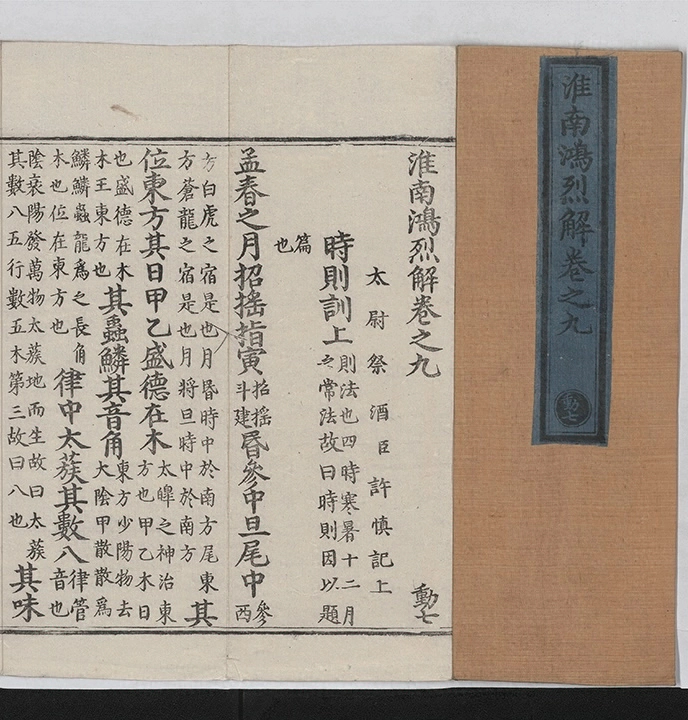 淮南鴻烈解卷之九
動七
淮南鴻烈解卷之九 動七
太尉祭酒臣許慎記上
時則訓上則法也四時寒暑十二月之常法故曰時則因以題
篇也
孟春之月招搖指寅招搖斗建昏參中旦尾中參西
方白虎之宿是也月昏時中於南方尾東方蒼龍之宿是也月將旦時中於南方其
位東方其日甲乙盛德在木太皞之神治東方也甲乙木日
也盛德在木木王東方也其蟲鱗其音角東方少陽物去大陰甲散散為
鱗鱗蟲龍為之長角木也位在東方也律中太蔟其數八律管音也
陰衰陽發萬物太蔟地而生故曰太蔟其數八五行數五木第三故曰八也其味